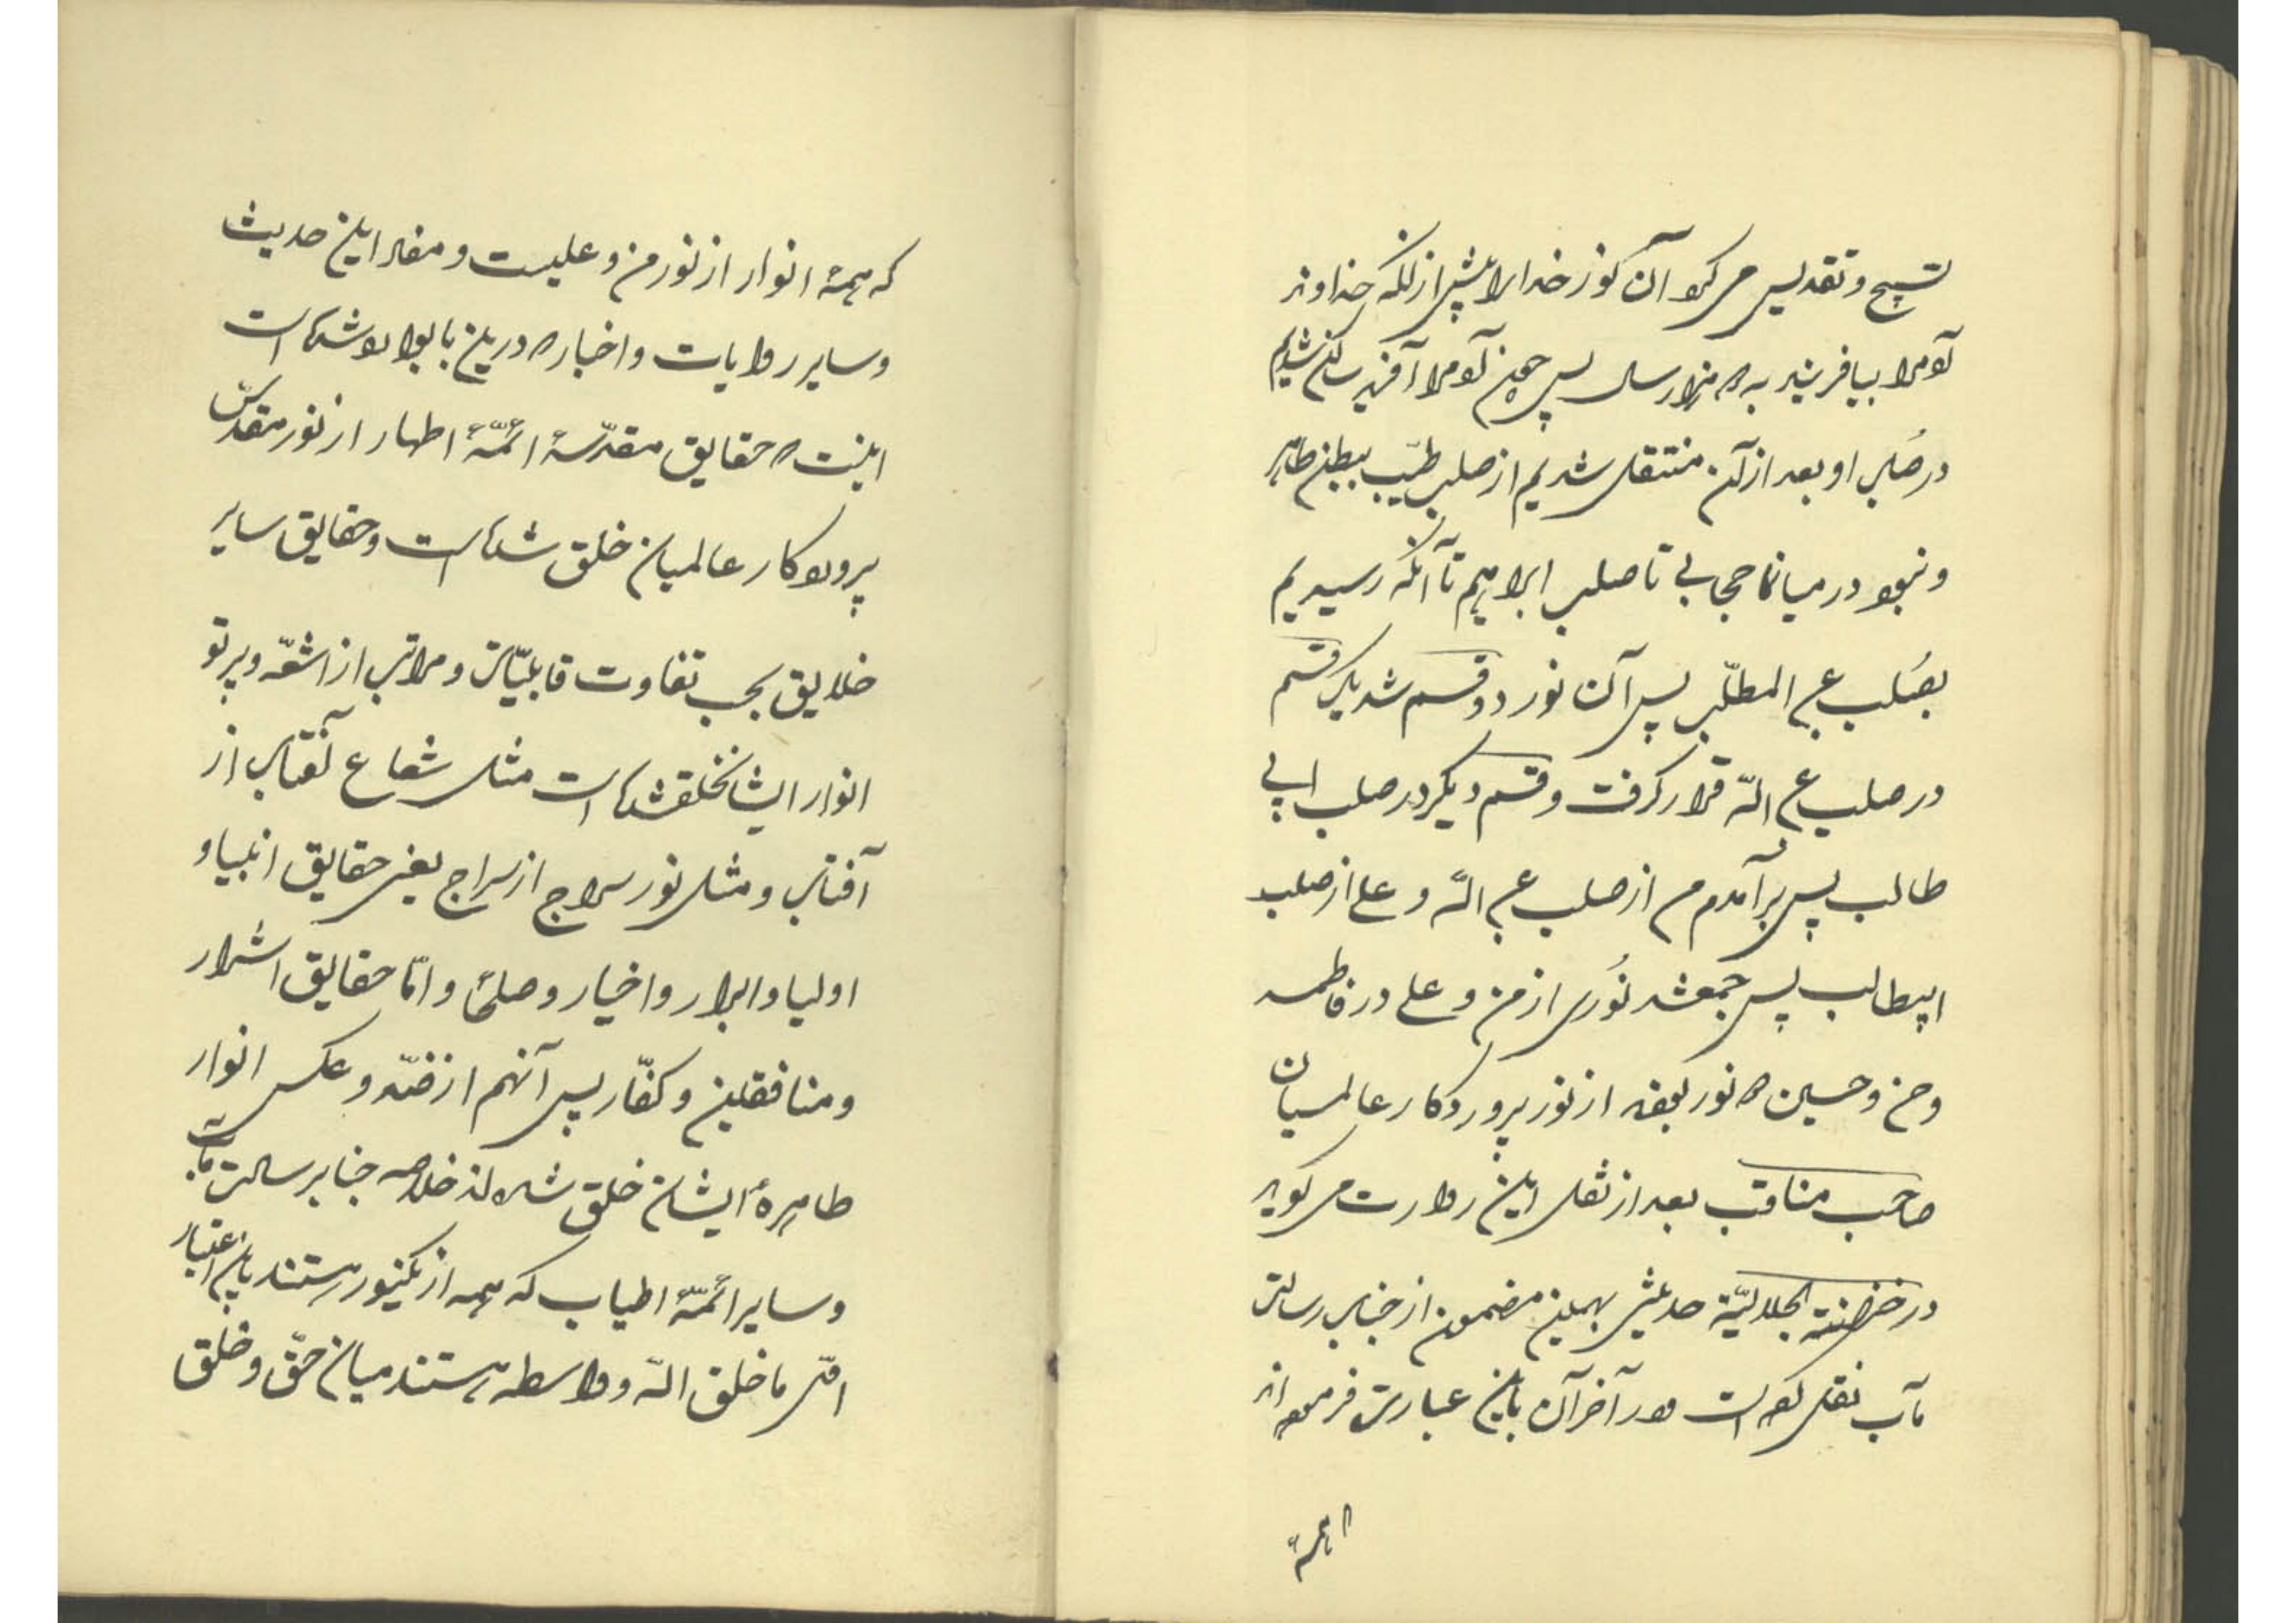 تسبیح و تقدیس می‌کرد آن نور خدا را پیش از آنکه خداوند
آدم را بیافریند به هزار سال پس چون آدم را آفرید ساکن شدیم
در صلب او بعد از آن منتقل شدیم از صلب طیّب ببطن طاهر
و نبود در میان ما حجابی تا صلب ابراهیم تا آنکه رسیدیم
بصُلب عبد المطّلب پس آن نور دو قسم شد یک قسم
در صلب عبد اللّه قرار گرفت و قسم دیگر در صلب ابی
طالب پس برآمدم من از صلب عبد اللّه و علی از صلب
ابیطالب پس جمع شد نُوری از من و علی در فاطمه
و حسن و حسین دو نور بودند از نور پروردگار عالمیان
صاحب مناقب بعد از نقل این روایت می‌گوید
در خزانة الجلالیّه حدیثی بهمین مضمون از جناب رسالت
مآب نقل کرده است و در آخر آن باین عبارت فرموده‌اند
که همهٔ
که همهٔ انوار از نور من و علیست و مفاد این حدیث
و سایر روایات و اخبار که در این باب وارد شده است
اینست که حقایق مقدّسهٔ ائمّهٔ اطهار از نور مقدّس
پروردگار عالمیان خلق شده است و حقایق سایر
خلایق بحسب تفاوت قابلیّات و مراتب از اشعّه و پرتو
انوار ایشان خلق شده است مثل شعاع آفتاب از
آفتاب و مثل نور سراج از سراج یعنی حقایق انبیا و
اولیا و ابرار و اخیار و صلحا و امّا حقایق اشرار
و منافقین و کفّار پس آنهم از ضدّ و عکس انوار
طاهرهٔ ایشان خلق شده‌اند خلاصه جناب رسالت مآب
و سایر ائمّهٔ اطیاب که همه از یک نور هستند باین اعتبار
اوّل ما خلق اللّه و واسطه هستند میان حقّ و خلق